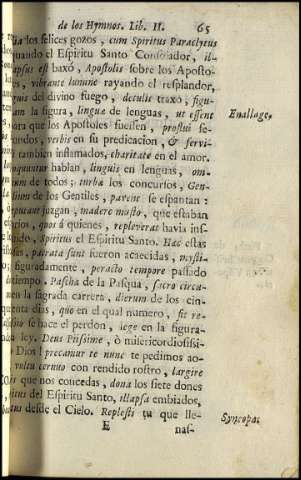 de los Hymnos. Lib. II. 65
los felices gozos, cum Spiritus Paraclytus
quando el Espiritu Santo Consolador, il-
lapsus est baxó, Apostolis sobre los Aposto-
s, vibrante lumine rayando el resplandor,
ignis del divino fuego, detulit traxó, figu-
am la figura, linguæ de lenguas, ut essent
Enallage,
ara que los Apostoles fuessen, proflui fe-
undos, verbis en su predicacion, & fervi-
tambien inflamados, charitate en el amor.
Loquuntur hablan, linguis en lenguas, om-
um de todos; turbæ los concursos, Gen-
ilium de los Gentiles, pavent se espantan:
putant juzgan, madere mosto, que estaban
egrios, quos á quienes, repleverat havia ins-
lado, Spiritus el Espiritu Santo. Hæc estas
, patrata sunt fueron acaecidas, mysti-
figuradamente, peracto tempore passado
tiempo. Paschæ de la Pasqua, sacro circu-
en la sagrada carrera, dierum de los cin-
uenta dias, quo en el qual numero, fit re-
issio se hace el perdon, lege en la figura-
ley. Deus Piissime, ò misericordiosissi-
Dios! precamur te nunc te pedimos ao-
vultu cernuo con rendido rostro, largire
que nos concedas, dona los siete dones
del Espiritu Santo, illapsa embiados,
desde el Cielo. Replesti tu que lle-
Syncopa.
E nas-